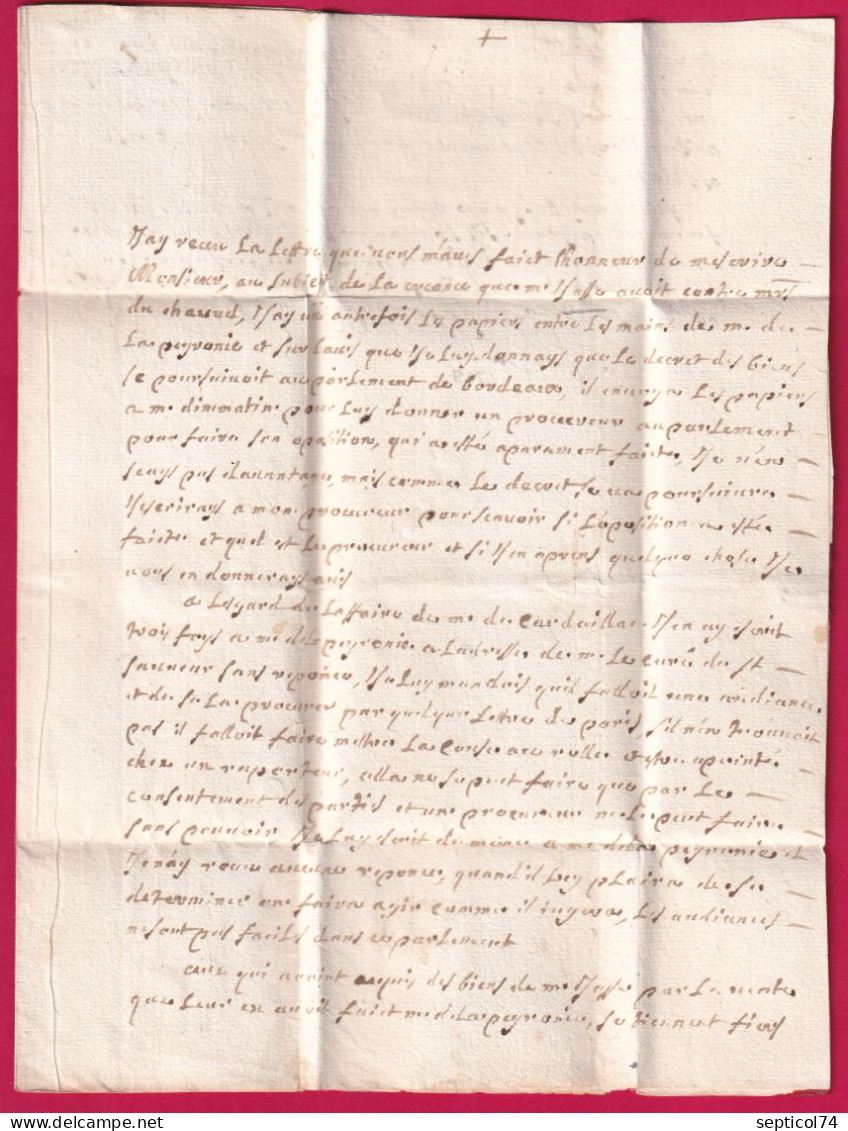 +
Jay receu la lettre que vous maues faict lhonneur de mescrire
Monsieur, au subiet de la creance que mr Jasse auoit contre mrs
du chazud, Jay eu autrefois les papiers entre les mains de mr de
la peyronie et sur lauis que Je luy donnays que le decret des biens
se poursuiuoit au parlement de bordeaux, il enuoya les papiers
a mr dimmatin pour luy donner un procureur au parlement
pour faire son oposition, qui a esté aparament faicte, Je n'en
scays pas dauantage, mais comme le decret se va poursuiure
Jescriray a mon procureur pour scauoir si loposition a esté
faicte et quel est le procureur et si Jen aprens quelque chose Je
vous en donneray auis
a lesgard de laffaire de mr de Cardaillac Jen ay escrit
trois foys a mr de la peyronie a ladresse de mr le curé de st
sauueur sans reponce, Je luy mandois quil falloit une audiance
et de se la procurer par quelque lettre de paris, s'il n'en trouuoit
pas il falloit faire mettre la cause au rolle et estre apointé
ches un raporteur, cella ne se peut faire que par le
consentement des partis et un procureur ne le peut faire
sans pouuoir, Je luy escrit de meme a mr de la peyronie et
Jenay receu aucune reponce, quand il luy plaira de se
determiner on faira agir comme il Jugera, les audiances
ne sont pas faciles dans ce parlement
ceux qui auoint aquis des biens de mr Jasse par la vente
que leur en auoit faict mr de la peyronie, se tiennent fiers
septicol74